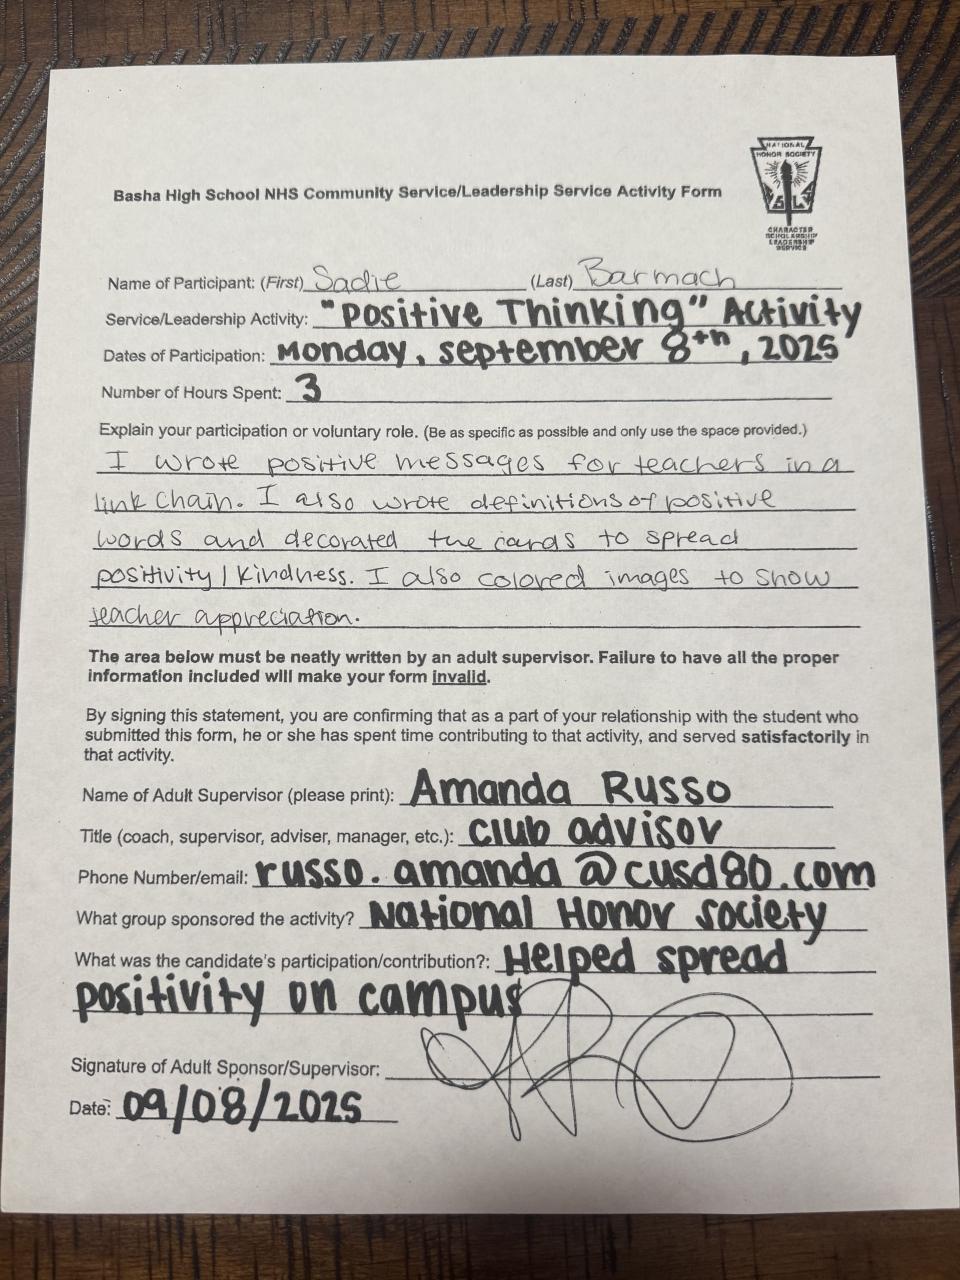 NATIONAL
HONOR SOCIETY
CHARACTER
SCHOLARSHIP
LEADERSHIP
SERVICE
Basha High School NHS Community Service/Leadership Service Activity Form
Name of Participant: (First) Sadie (Last) Barmach
Service/Leadership Activity: "Positive Thinking" Activity
Dates of Participation: Monday, September 8th, 2025
Number of Hours Spent: 3
Explain your participation or voluntary role. (Be as specific as possible and only use the space provided.)
I wrote positive messages for teachers in a
link chain. I also wrote definitions of positive
words and decorated the cards to spread
positivity / kindness. I also colored images to show
teacher appreciation.
The area below must be neatly written by an adult supervisor. Failure to have all the proper
information included will make your form invalid.
By signing this statement, you are confirming that as a part of your relationship with the student who
submitted this form, he or she has spent time contributing to that activity, and served satisfactorily in
that activity.
Name of Adult Supervisor (please print): Amanda Russo
Title (coach, supervisor, adviser, manager, etc.): club advisor
Phone Number/email: russo.amanda@cusd80.com
What group sponsored the activity? National Honor Society
What was the candidate's participation/contribution?: Helped spread
positivity on campus
Signature of Adult Sponsor/Supervisor:
Date: 09/08/2025